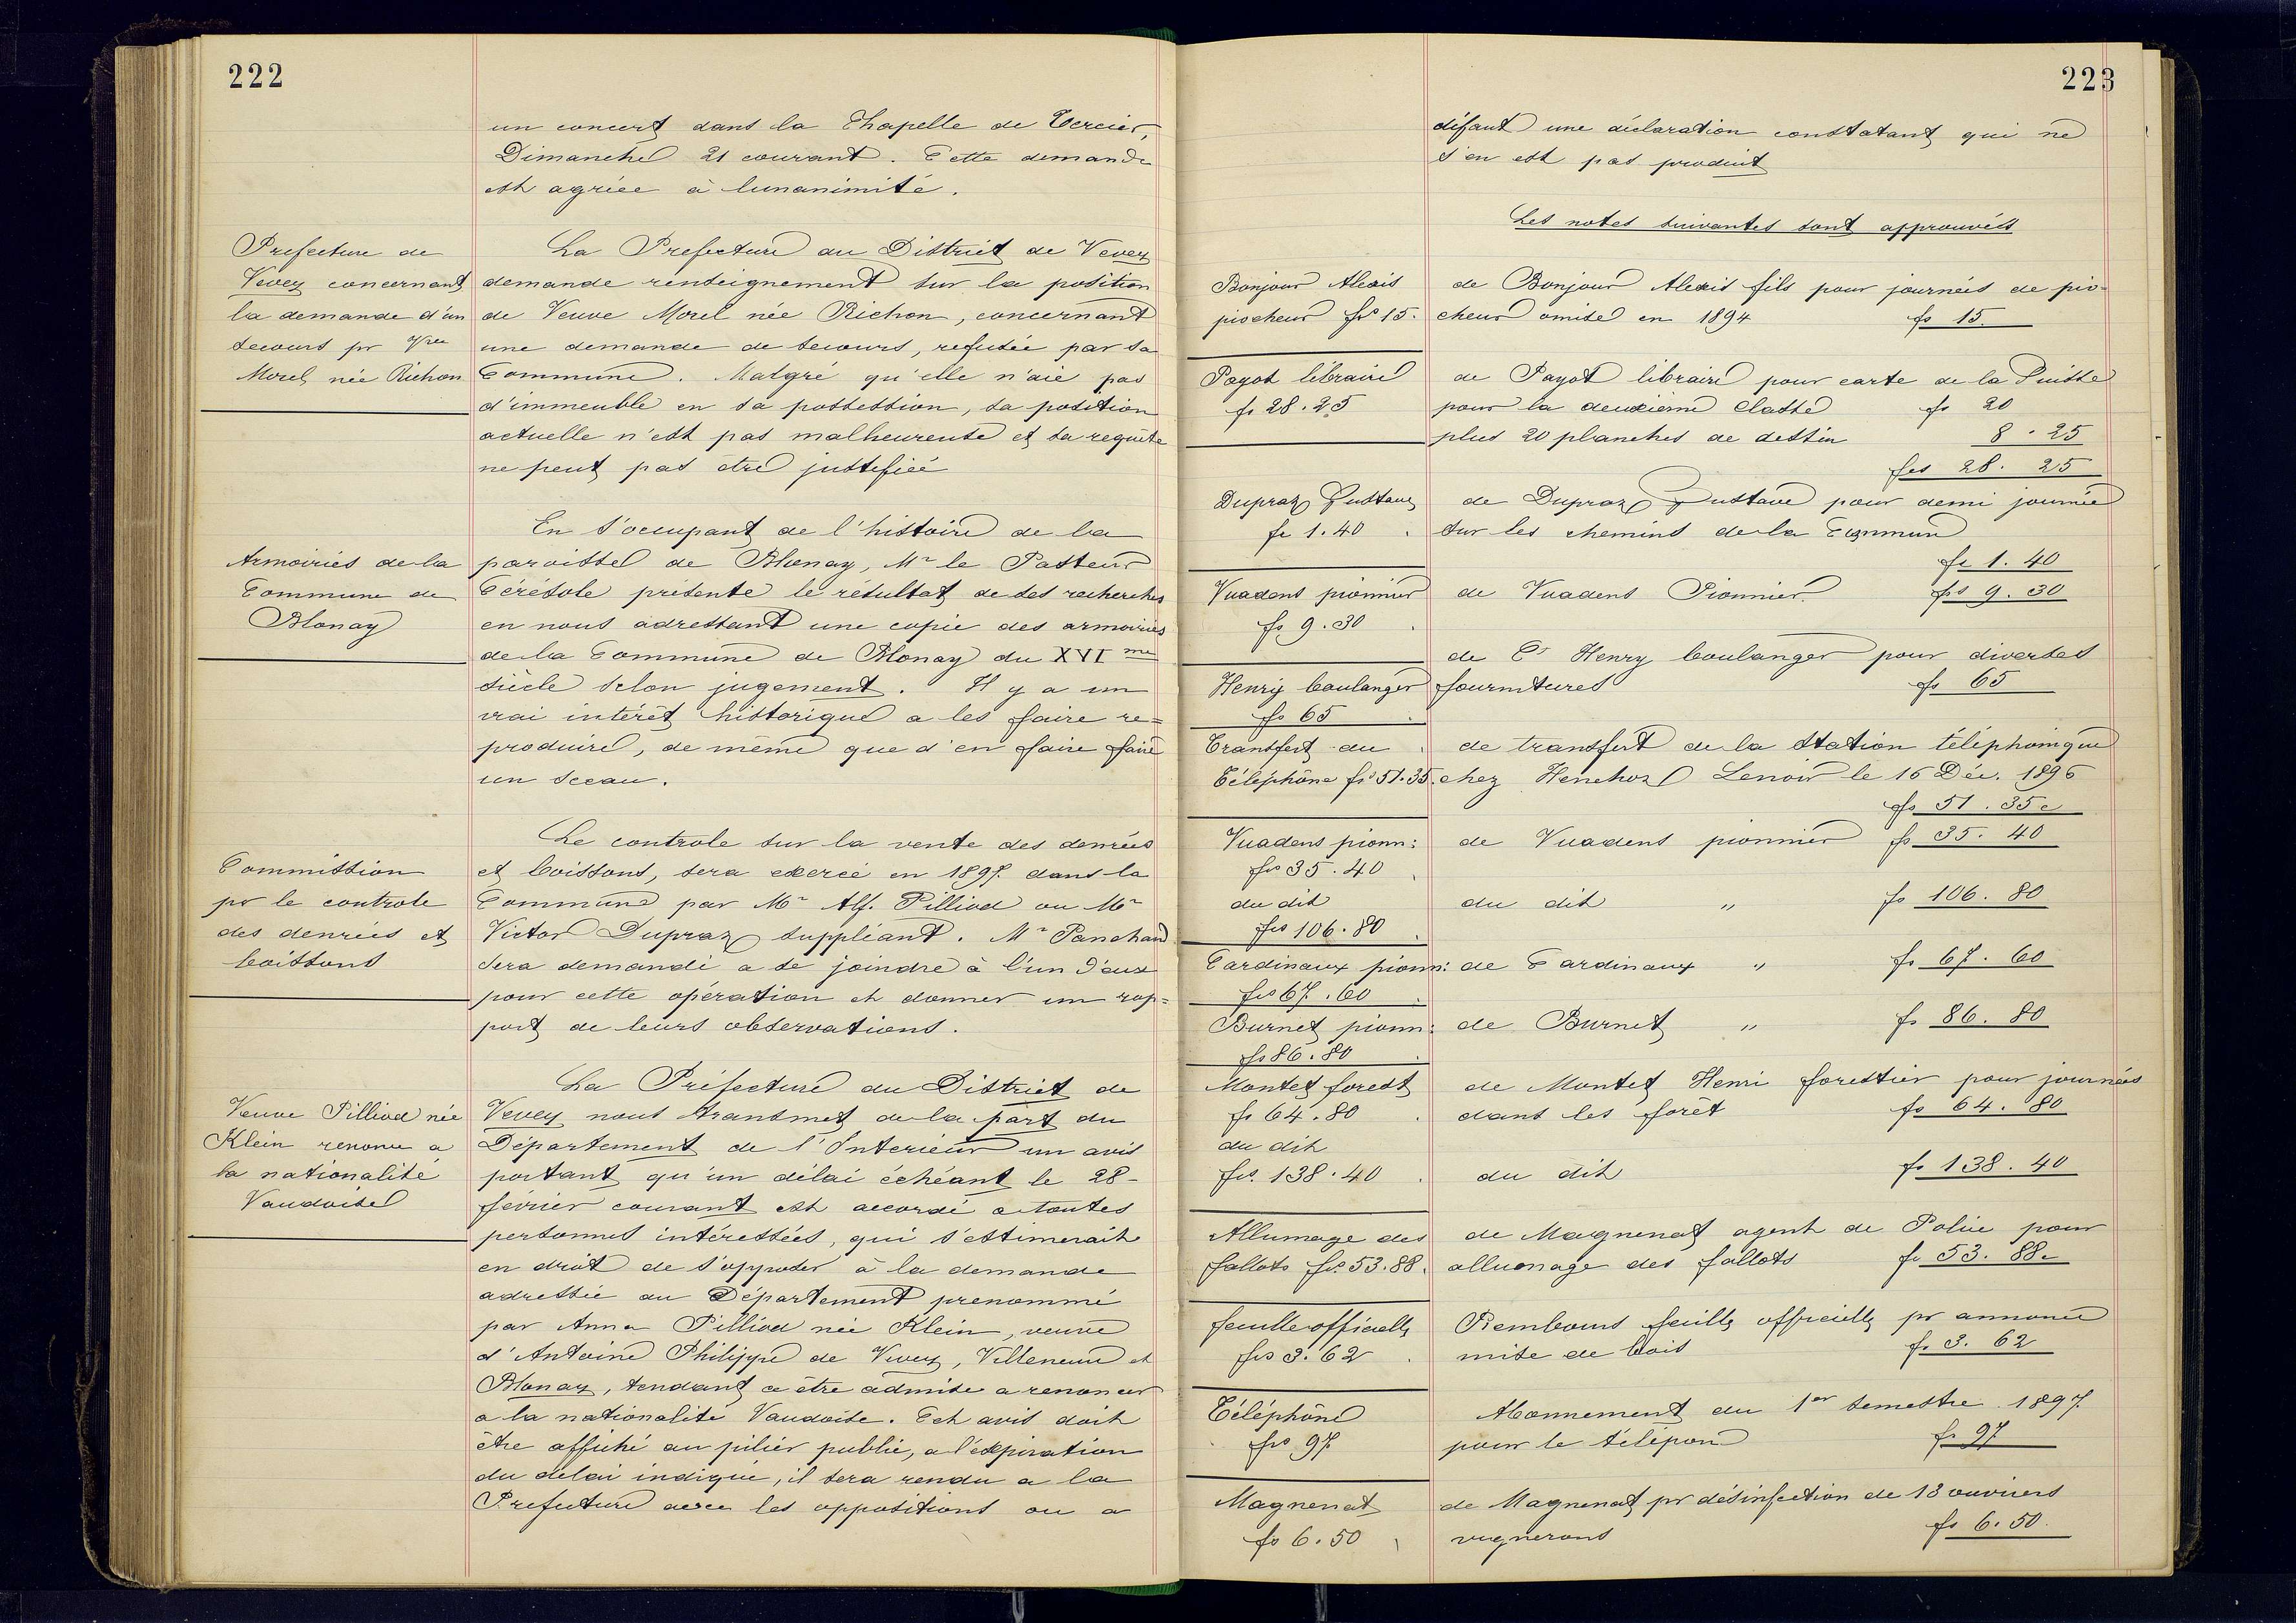 222
un concert dans la Chapelle de Cercier,
Dimanche 21 courant. Cette demande
est agréée à lunanimité.
Prefecture de
Vevey concernant
la demande d'un
secours pr Vve
Morel née Richon
La Prefecture du District de Vevey
demande renseignement sur la position
de Veuve Morel née Richon, concernant
une demande de secours, refusée par sa
Commune. Malgré qu'elle n'aie pas
d'immeuble en sa possession, sa position
actuelle n'est pas malheureuse et sa requête
ne peut pas être justefiée
Armoiries de la
Commune de
Blonay
En s'occupant de l'histoire de la
paroisse de Blonay, Mr le Pasteur
Cérésole présente le résultat de ses recherches
en nous adressant une copie des armoiries
de la Commune de Blonay du XVIme
siècle selon jugement. Il y a un
vrai intérêt historique a les faire re=
produire, de même que d'en faire faire
un sceau.
Commission
pr le controle
des denrées et
boissons
Le controle sur la vente des denrées
et boissons, sera exercé en 1897. dans la
Commune par Mr Alf. Pilliod ou Mr
Victor Dupraz suppléant. Mr Panchaud
sera demandé a se joindre à l'un d'eux
pour cette opération et donner un rap=
port de leurs observations.
Veuve Pilliod née
Klein renonce a
la nationalité
Vaudoise
La Préfecture du District de
Vevey nous transmet de la part du
Département de l'Interieur un avis
portant qu'un délai échéant le 28-
février courant est accordé a toutes
personnes intéressées, qui s'estimerait
en droit de s'opposer à la demande
adressée au Département prenommé
par Anna Pilliod née Klein, veuve
d'Antoine Philippe de Vevey, Villeneuve et
Blonay, tendant a être admise a renoncer
a la nationalité Vaudoise. Cet avis doit
être affiché au pilier public, a l'éxpiration
du délai indiqué, il sera rendu a la
Prefecture avec les oppositions ou a
223
défaut une déclaration constatant qui ne
s'en est pas produit
Les notes suivantes sont approuvées
Bonjour Alexis
piocheur frs 15.
de Bonjour Alexis fils pour journées de pio-
cheur omise en 1894 fs 15.
Payot libraire
fr 28.25
de Payot libraire pour carte de la Suisse
pour la deuxième Classe fr 20
plus 20 planches de dessin 8.25
frs 28.25
Dupraz Gustave
fr 1.40
de Dupraz Gustave pour demi journée
sur les chemins de la Commune
fr 1.40
Vuadens pionnier
fr 9.30
de Vuadens Pionnier frs 9.30
Henry boulanger
fs 65
de Cs Henry boulanger pour diverses
fournitures fr 65
Transfert du
Téléphone frs 51.35.
de transfert de la station téléphonique
chez Henchoz Lenoir le 16 Déc. 1896
fs 51.35c
Vuadens pionn:
frs 35.40
de Vuadens pionnier fs 35.40
du dit
frs 106.80
du dit " fs 106.80
Cardinaux pionn:
frs 67.60
de Cardinaux " fr 67.60
Burnet pionn:
fs 86.80
de Burnet " fr 86.80
Montet forest
fr 64.80
de Montet Henri forestier pour journées
dans les forêt fs 64.80
du dit
frs. 138.40
du dit fr 138.40
Allumage des
fallots frs. 53.88.
de Magnenat agent de Police pour
allumage des fallots fr 53.88c
feuille officielle
frs 3.62
Rembours feuille officielle pr annonce
mise de bois fr 3.62
Téléphone
frs 97
Abonnement du 1er semestre 1897
pour le télépone fr 97
Magnenat
fs 6.50
de Magnenat pr désinfection de 13 ouvriers
vignerons fs 6.50.